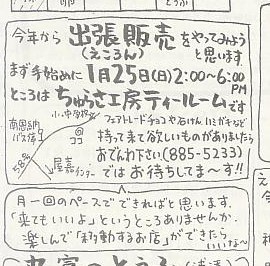 今年から 出張販売をやってみよう
(えころん) と思います
まず手始めに 1月25日(日)2:00〜6:00 PM
ところは ちゅらさ工房ティールームです
小・中学校
フェアトレードチョコや石けん、ハミガキなど
南恩納
バス停
ココ
58号
屋嘉インター
持って来て欲しいものがありましたら
おでんわ下さい(885-5233)
ではお待ちしてま〜す!!
月一回のペースでできればと思います.
「来てもいいよ」というところありませんか.
楽しんで「移動するお店」ができたら
いいな〜